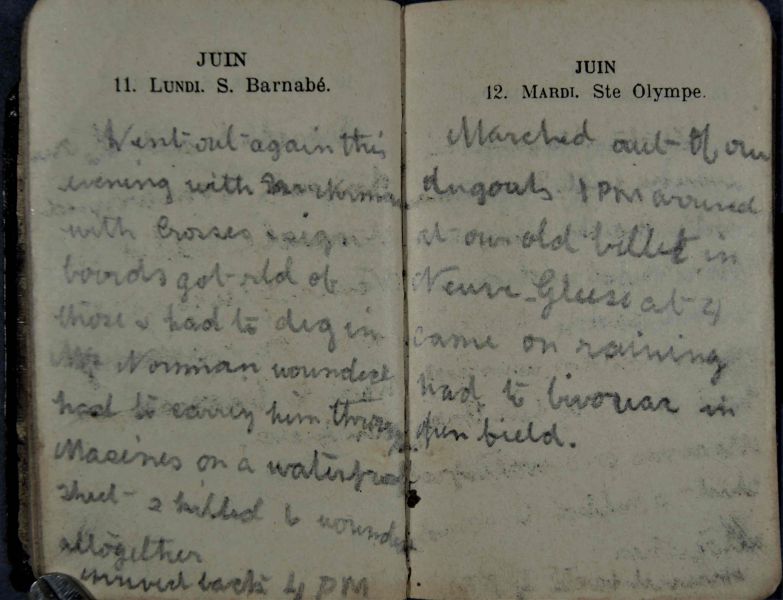 JUIN
11. LUNDI. S. Barnabé.
Went out again this
evening with
with Crosses & sign
boards got rid of
those & had to dig in
Mr Norman wounded
had to carry him through
Masines on a waterproof
sheet - 2 killed 6 wounded
altogether
arrived back 4 PM
JUIN
12. MARDI. Ste Olympe.
Marched out of our
dugouts 1 PM arrived
at our old billet in
Neuve Gleese at 4
came on raining
had to bivouac in
open field.